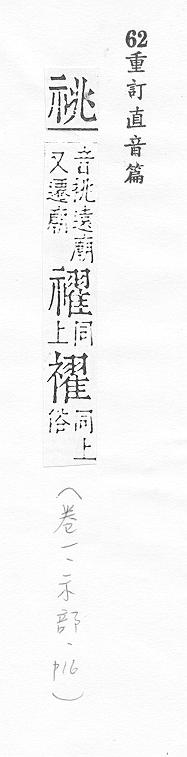 62重訂直音篇
祧音挑遠廟又遷廟䄻同上同上俗
(卷一、示部、p16)